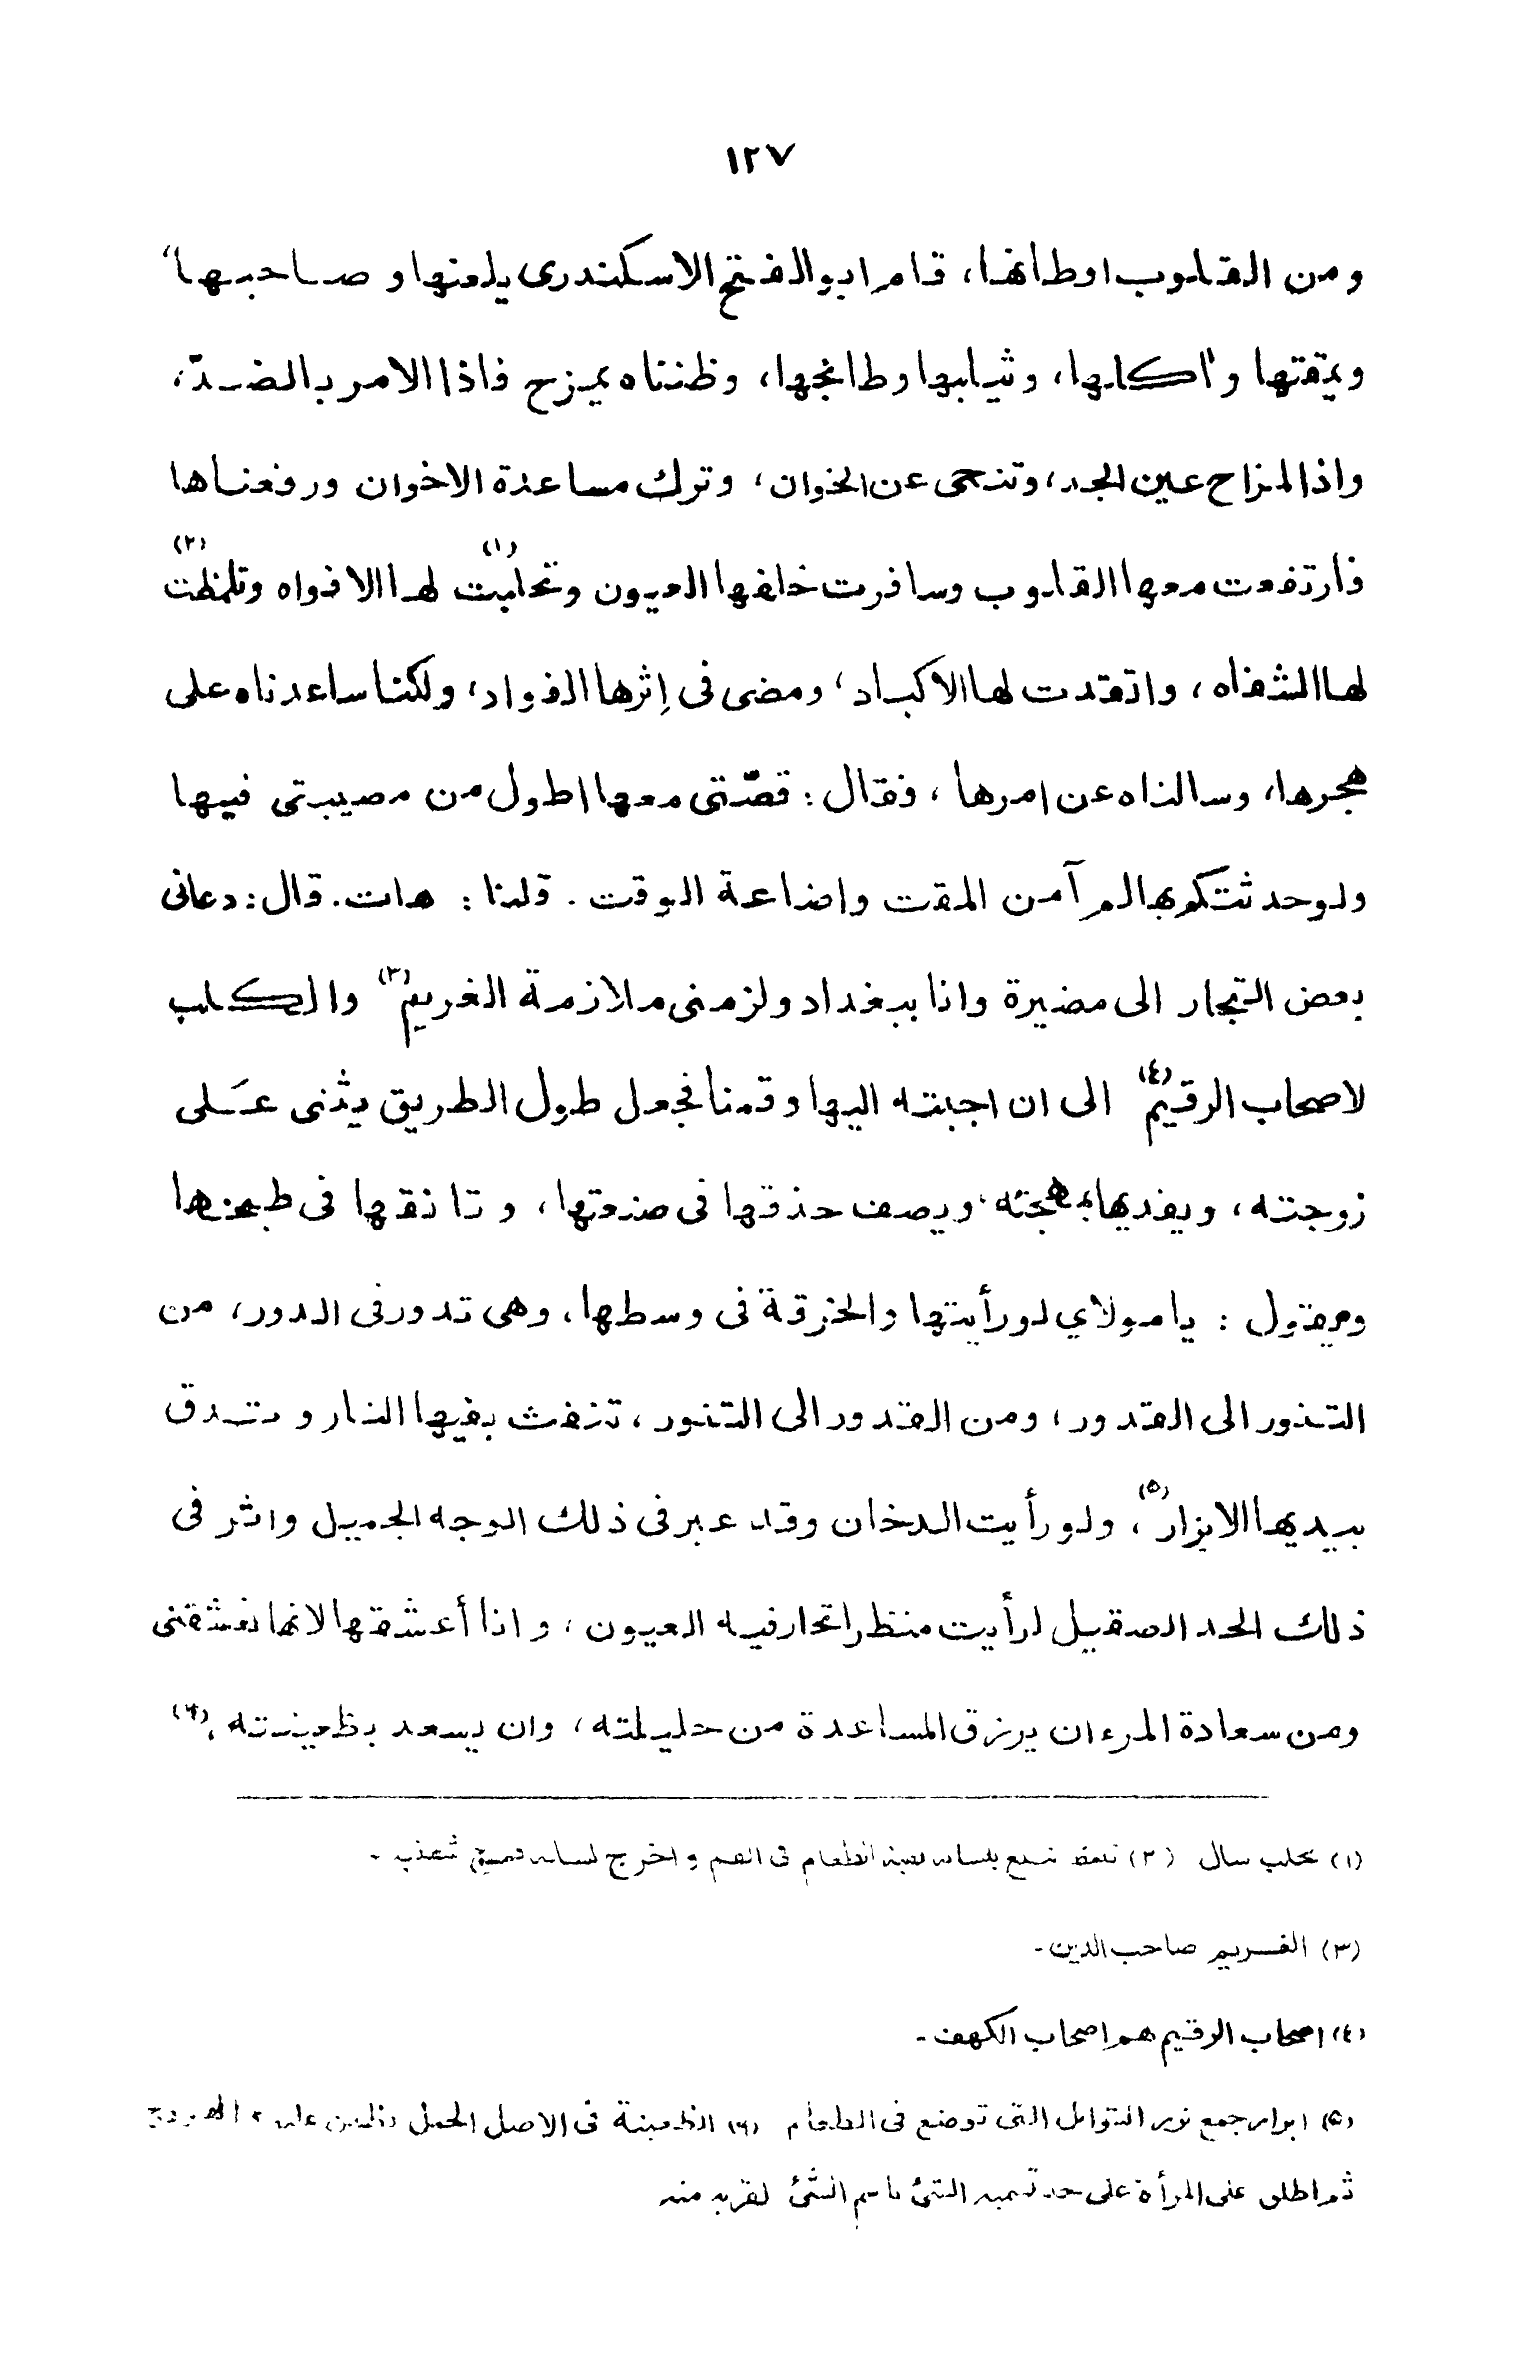 ١٢٧
ومن القلوب اوطانها، قام ابو الفتح الاسكندرى يلعنها وصاحبها،
ويمقتها وآكلها، وثيابها وطابخها، وظنناه يمزح فاذا الامر بالضدّ،
واذا المزاح عين الجد، وتنحى عن الخوان، وترك مساعدة الاخوان ورفعناها
فارتفعت معها القلوب وسافرت خلفها العيون وتحلبت(١) لها الافواه وتلمظت(٢)
لها الشفاه، واتقدت لها الاكباد، ومضى فى إثرها الفواد، ولكنا ساعدناه على
هجرها، وسالناه عن امرها، فقال: قصّتى معها اطول من مصيبتى فيها
ولو حدثتكم بها لم آمن المقت واضاعة الوقت. قلنا: هات. قال: دعانى
بعض التجار الى مضيرة وانا ببغداد ولزمنى ملازمة الغريم(٣) والكلب
لاصحاب الرقيم(٤) الى ان اجبته اليها وقمنا فجعل طول الطريق يثنى عَلى
زوجته، ويفديها بمهجته، ويصف حذقها فى صنعتها، وتانقها فى طبخها
ويقول: يا مولاي لو رأيتها والخرقة فى وسطها، وهى تدور فى الدور، من
التنور الى القدور، ومن القدور الى التنور، تنفث بفيها النار وتدق
بيديها الابزار(٥)، ولو رأيت الدخان وقد عبر فى ذلك الوجه الجميل واثر فى
ذلك الخد الصقيل لرأيت منظرا تحار فيه العيون، وانا أعشقها لانها تعشقنى
ومن سعادة المرء ان يرزق المساعدة من حليلته، وان يسعد بظعينته،(٦)
(١) تحلب سال (٢) تلمظ تتبع بلسانه بقية الطعام فى الفم واخرج لسانه فمسح شفتيه -
(٣) الغريم صاحب الدين -
(٤) اصحاب الرقيم هم اصحاب الكهف -
(٥) ابزار جمع بزر التوابل التى توضع فى الطعام (٦) الظعينة فى الاصل الجمل يظعن عليه الهودج
ثم اطلق على المرأة على حد تسمية الشئ باسم الشئ لقربه منه